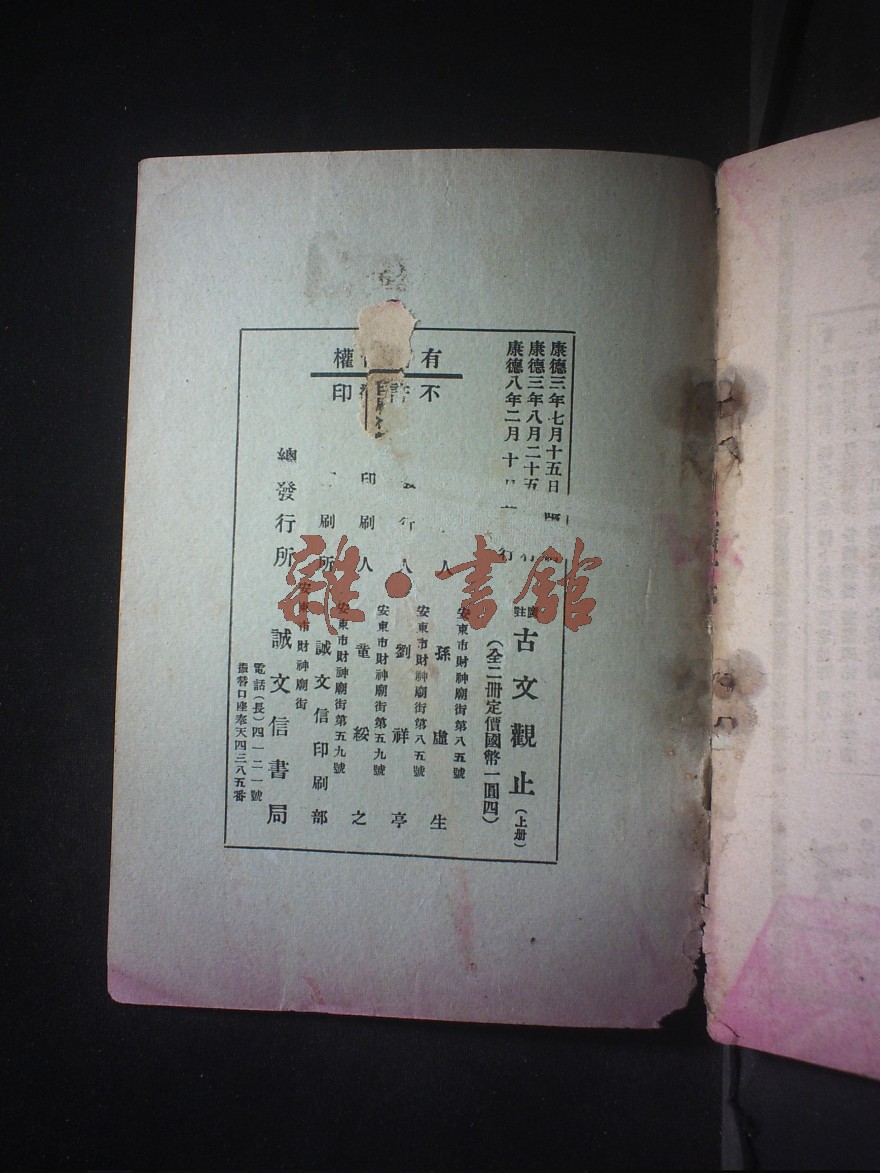 康德三年七月十五日印
康德三年八月二十五
康德八年二月十
行
註
古文觀止(上册)
(全二冊定價國幣一圓四)
人 孫虛生
安東市財神廟街第八五號
行人 劉祥亭
安東市財神廟街第八五號
印刷人 童綏之
安東市財神廟街第五九號
刷所 誠文信印刷部
安東市財神廟街第五九號
總發行所 誠文信書局
安東市財神廟街
電話(長)四一二一號
振替口座奉天四三八五番
有 權
不許 印
雜·書館